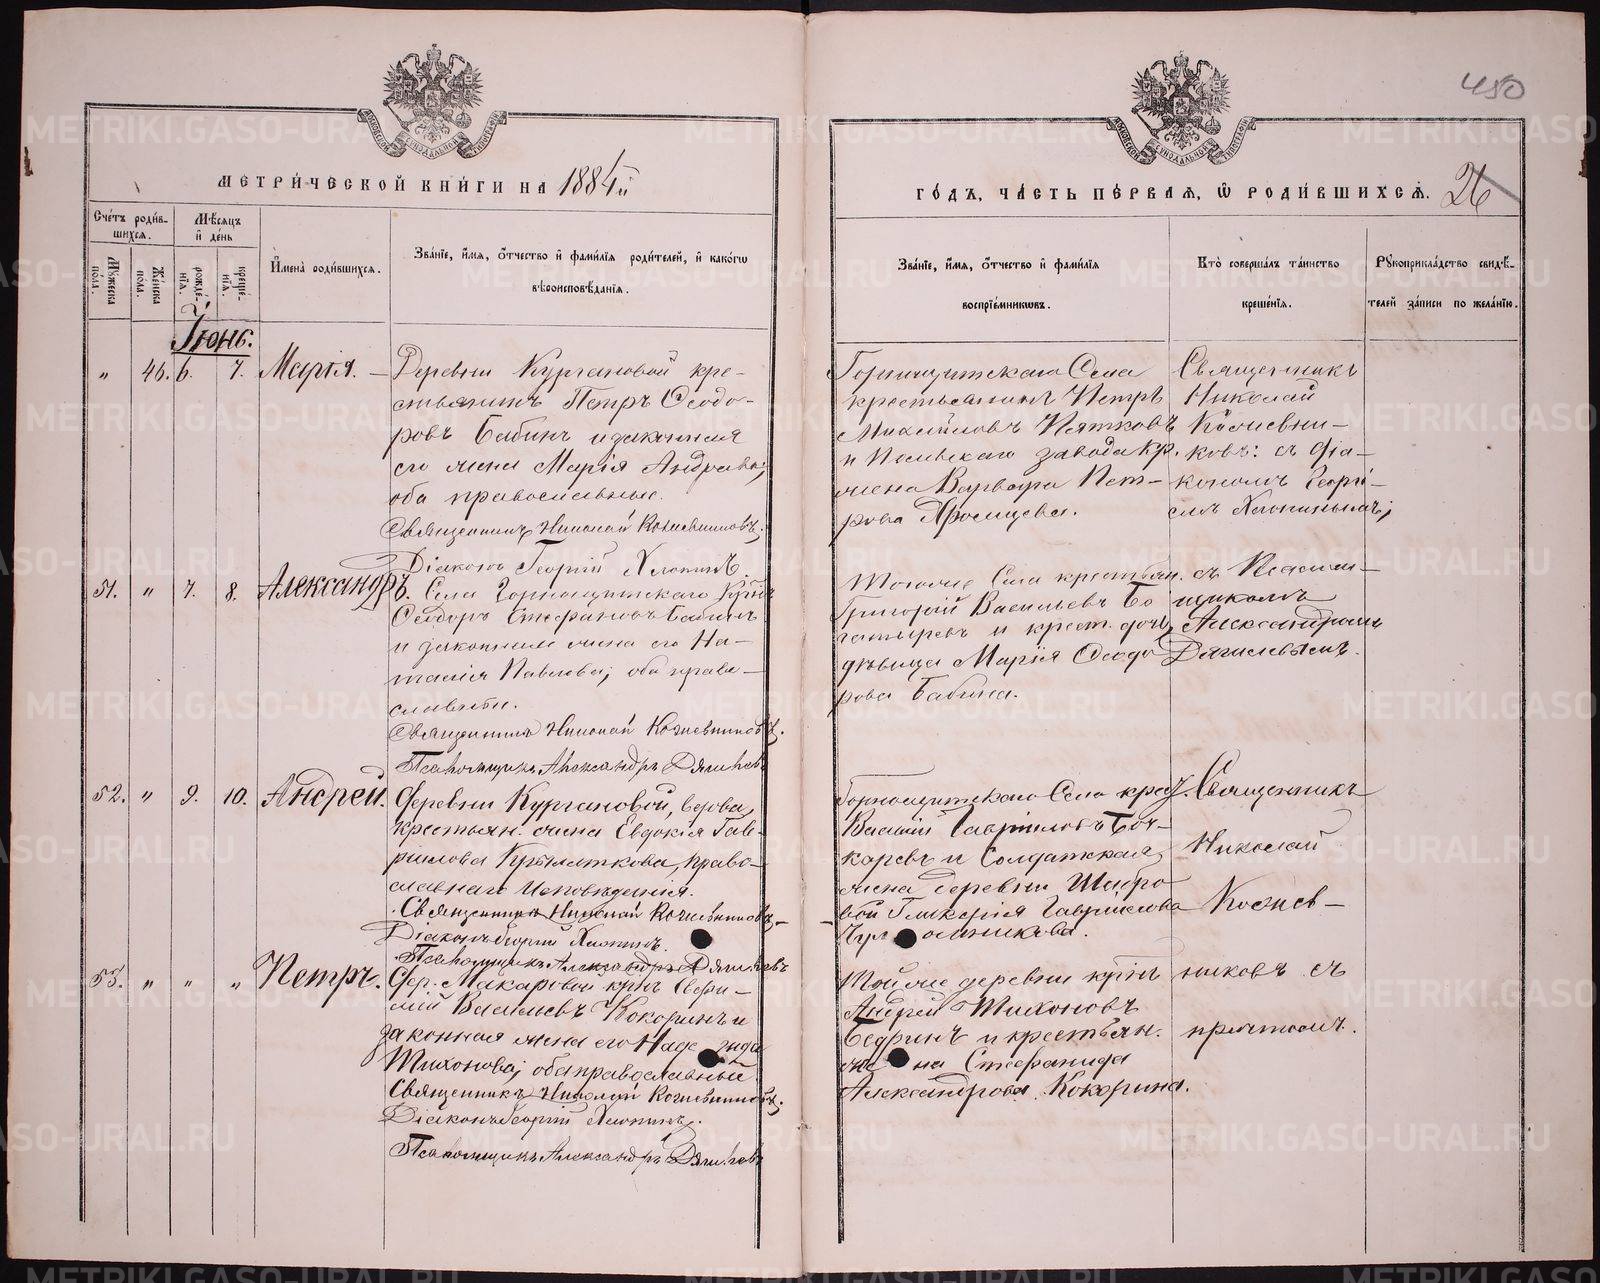 450
МЕТРИ́ЧЕСКОЙ КНИ́ГИ НА 1884й
ГО́ДЪ, ЧА́СТЬ ПЕ́РВАЯ, Ѡ РОДИ́ВШИХСѦ. 26
Сче́тъ роди́в-
шихсѧ.
Мѣ́сяцъ
и де́нь
Мꙋжеска по́ла.
Же́нска по́ла.
рожде́-нїѧ.
креще́-нїѧ.
И҆мена̀ роди́вшихсѧ.
Зва́нїе, и҆́мѧ, ѻ҆́тчество и҆ фами́лїѧ роди́телей, и҆ како́гѡ
вѣроисповѣ́данїѧ.
Зва́нїе, и҆́мѧ, ѻ҆́тчество и҆ фами́лїѧ
воспрїе́мникѡвъ.
Кто̀ соверша́лъ та́инство
креще́нїѧ.
Рꙋкоприкла́дство свидѣ́-
телей за́писи по жела́нїю.
Іюнь.
" 46. 6. 7. Марія. –
Деревни Кургановой кре-
стьянинъ Петръ Ѳеодо-
ровъ Бабинъ и законная
его жена Марія Андреева,
оба православные.
Священникъ Николай Кожевниковъ.
Діаконъ Георгій Хлопинъ.
Горнощитскаго Села
крестьянинъ Петръ
Михайловъ Пятковъ
и Полевскаго завода кр.
жена Варвара Пет-
рова
Священникъ
Николай
Кожевни-
ковъ: съ діа-
кономъ Георгі-
емъ Хлопинымъ;
51. " 7. 8. Александръ.
Села Горнощитскаго кр-нъ
Ѳеодоръ Стефановъ Бабинъ
и законная жена его На-
талія Павлова; оба право-
славные.
Священникъ Николай Кожевниковъ.
Псаломщикъ Александръ Дягилевъ
Тогоже Села крестьян.
Григорій Васильевъ Бо
гатыревъ и крест. дочь
дѣвица Марія Ѳеодо
рова Бабина.
съ Псалом-
щикомъ
Александромъ
Дягилевымъ.
52. " 9. 10. Андрей.
Деревни Кургановой, вдова,
крестьян. жена Евдокія Гав-
рилова Крылаткова, право-
славнаго исповѣданія.
Священникъ Николай Кожевниковъ
Діаконъ Георгій Хлопинъ.
Псаломщикъ Александръ Дягилевъ
Горнощитскаго Села крест.
Василій Гавриловъ Боч-
каревъ и Солдатская
жена деревни Шабро-
вой Гликерія Гаврилова
Священникъ
Николай
Кожев-
53. " " " Петръ.
Дер. Макаровой кр-нъ
Васильевъ Кокоринъ и
законная жена его Надежда
Тихонова; оба православные
Священникъ Николай Кожевниковъ.
Діаконъ Георгій Хлопинъ.
Псаломщикъ Александръ Дягилевъ
Той же деревни кр-нъ
Андрей Тихоновъ
Бедринъ и крестьян.
жена Стефанида
Александрова Кокорина.
никовъ съ
причтомъ.